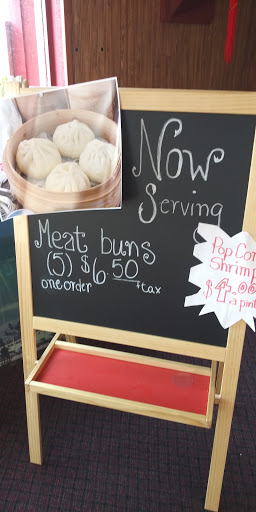 Now
Serving
Meat buns
(5) $6.50
one order + tax
Pop Corn
Shrimp
$4.00
a pint